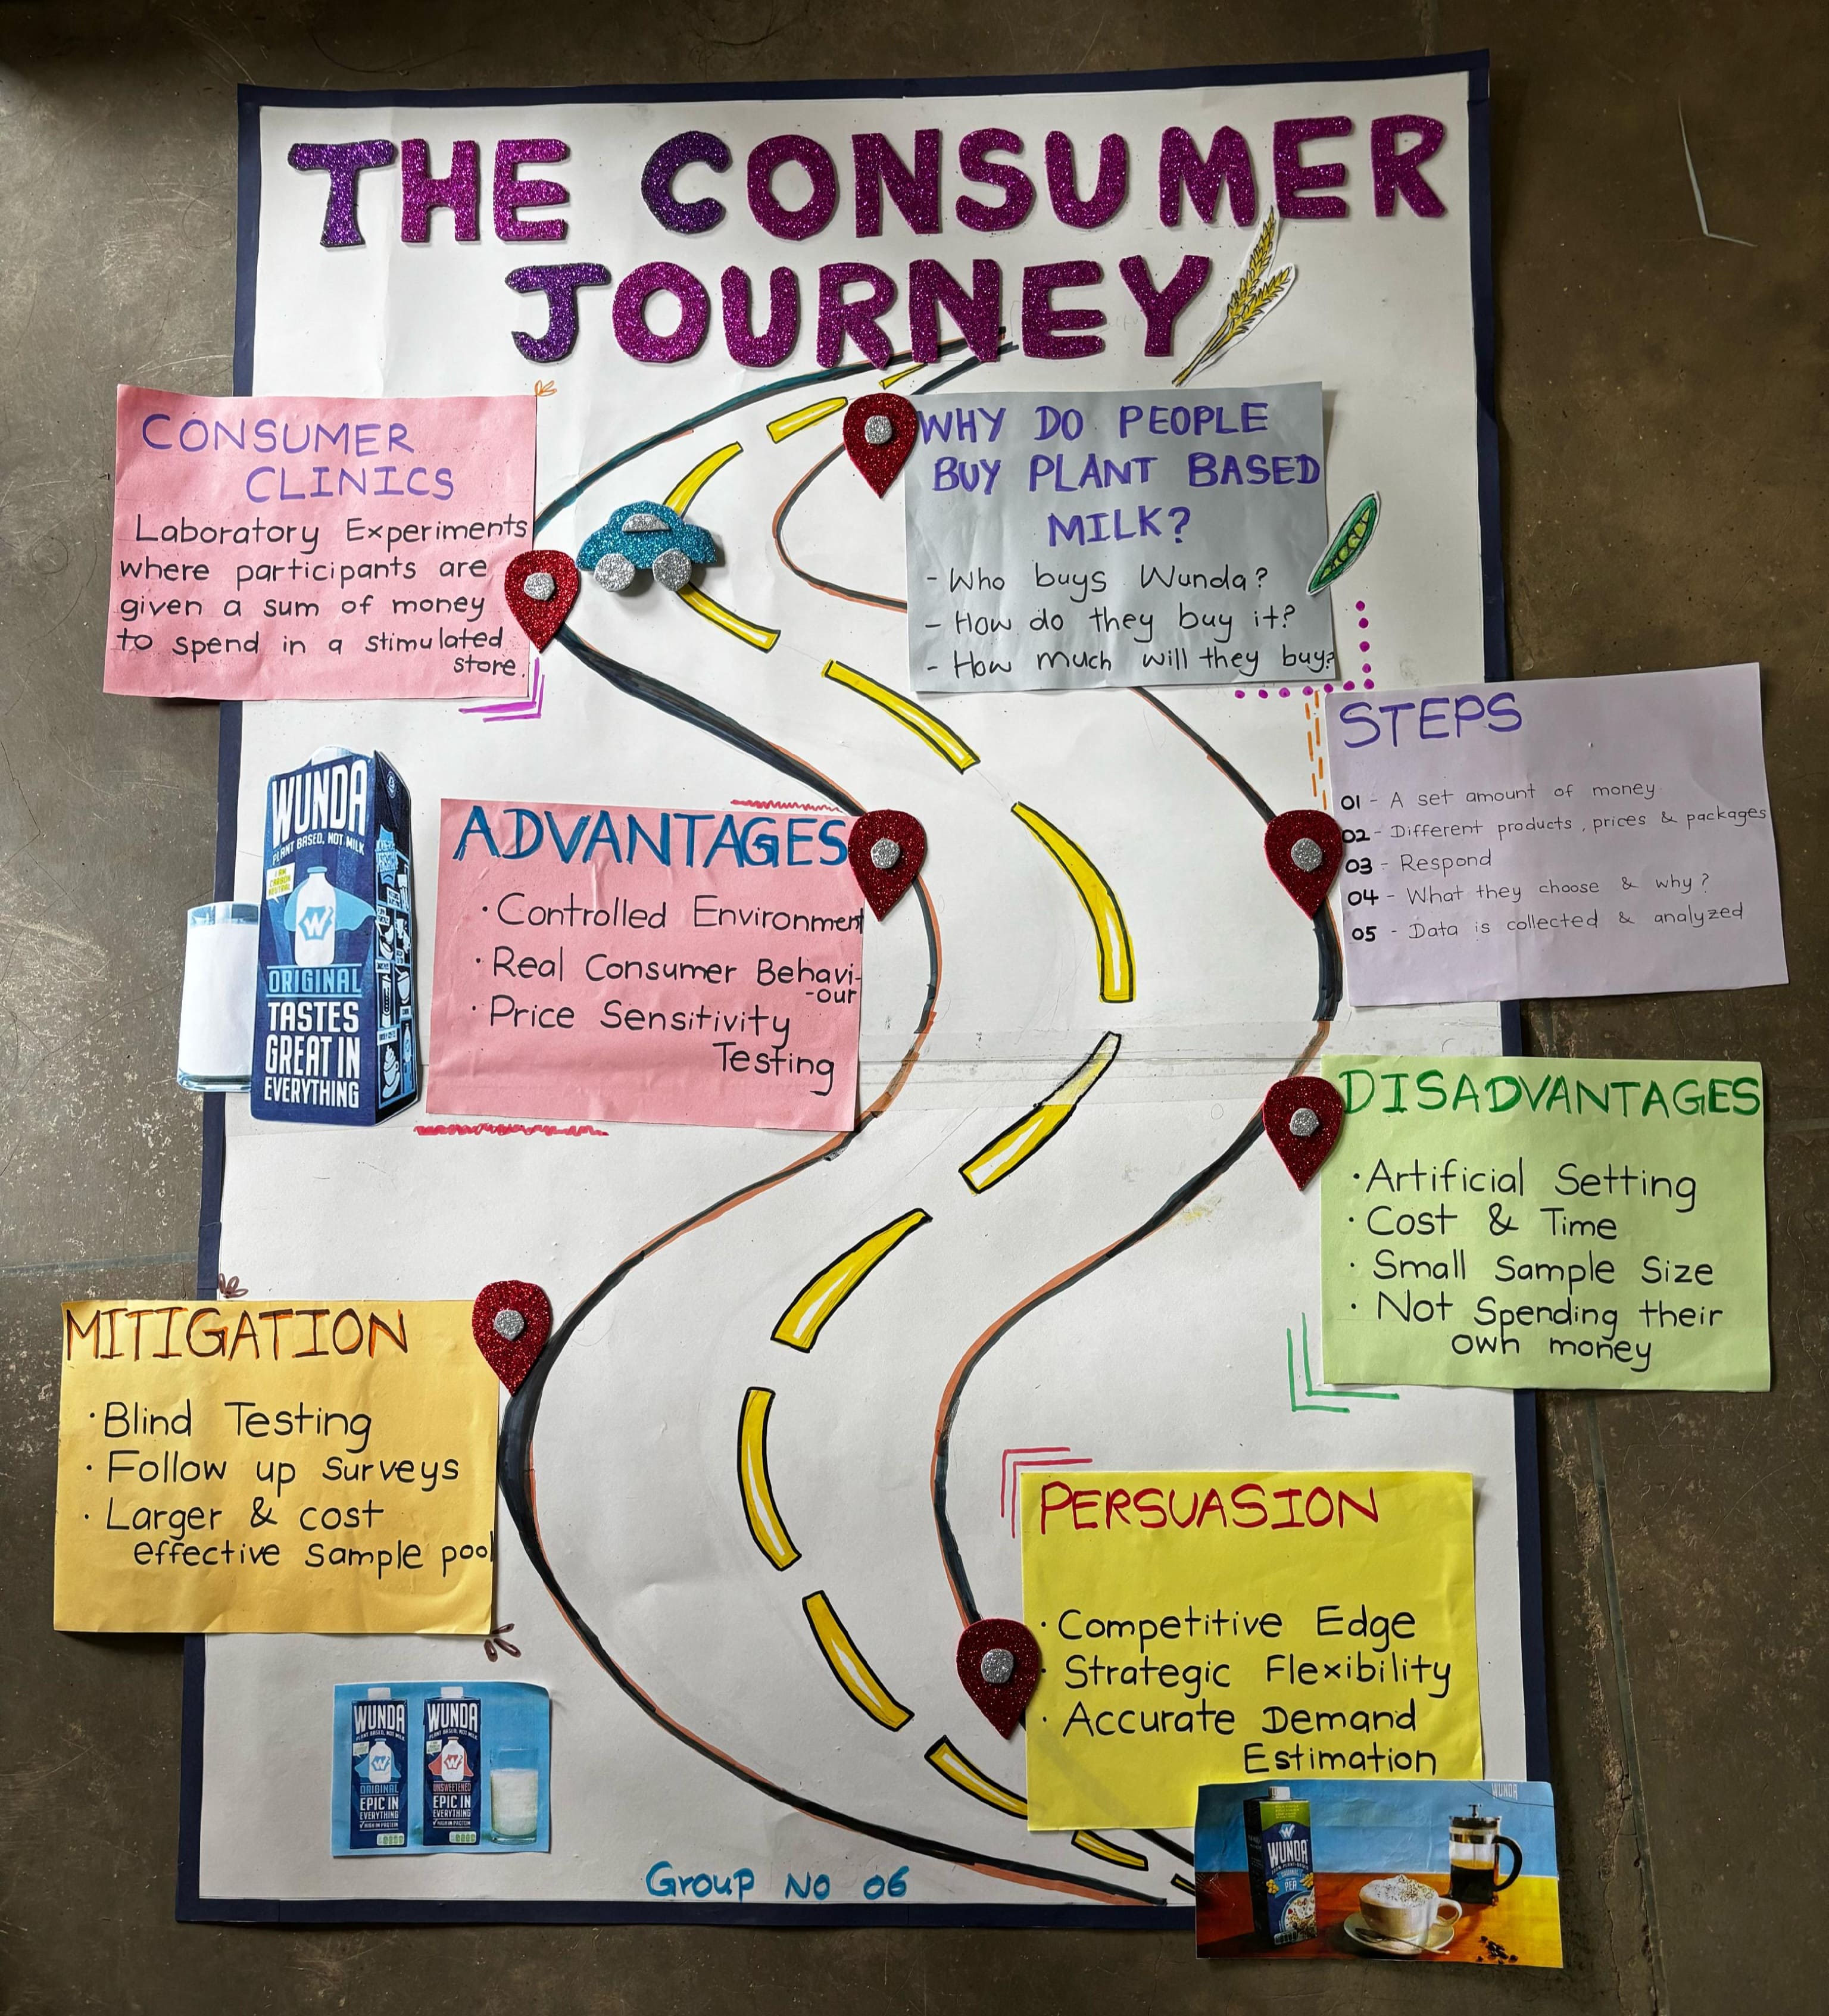 THE CONSUMER
JOURNEY
CONSUMER
CLINICS
Laboratory Experiments
where participants are
given a sum of money
to spend in a stimulated
store.
WHY DO PEOPLE
BUY PLANT BASED
MILK?
- Who buys Wunda?
- How do they buy it?
- How much will they buy?
STEPS
01 - A set amount of money
02 - Different products, prices & packages
03 - Respond
04 - What they choose & why?
05 - Data is collected & analyzed
WUNDA
PLANT BASED, NOT MILK
I AM
CARBON
NEUTRAL
W
ORIGINAL
TASTES
GREAT IN
EVERYTHING
ADVANTAGES
· Controlled Environment
· Real Consumer Behavi-
-our
· Price Sensitivity
Testing
DISADVANTAGES
· Artificial Setting
· Cost & Time
· Small Sample Size
· Not Spending their
own money
MITIGATION
· Blind Testing
· Follow up surveys
· Larger & cost
effective sample pool
PERSUASION
· Competitive Edge
· Strategic Flexibility
· Accurate Demand
Estimation
WUNDA
PLANT BASED, NOT MILK
W
ORIGINAL
EPIC IN
EVERYTHING
HIGH IN PROTEIN
WUNDA
PLANT BASED, NOT MILK
W
UNSWEETENED
EPIC IN
EVERYTHING
HIGH IN PROTEIN
Group No 06
WUNDA
W
WUNDA
ORIGINAL
PEA